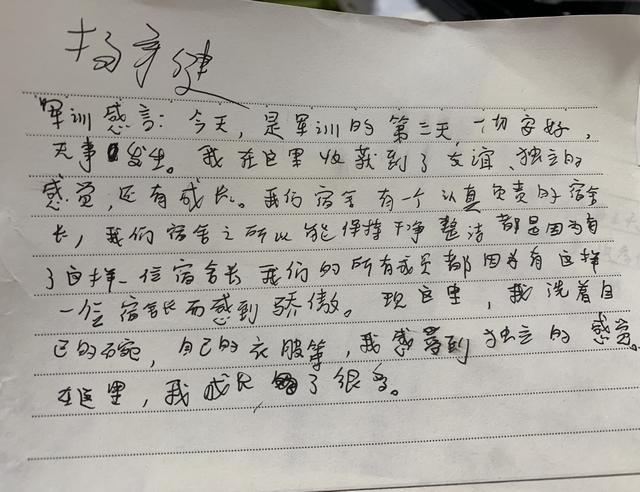 杨亨健
军训感言：今天，是军训的第三天，一切安好，
无事发生。我在这里收获到了友谊、独立的
感觉，还有成长。我们宿舍有一个认真负责的宿舍
长，我们宿舍之所以能保持干净整洁都是因为有
了这样一位宿舍长我们的所有成员都因为有这样
一位宿舍长而感到骄傲。现这里，我洗着自
己的碗，自己的衣服等，我感受到独立的感觉。
在这里，我成长了很多。